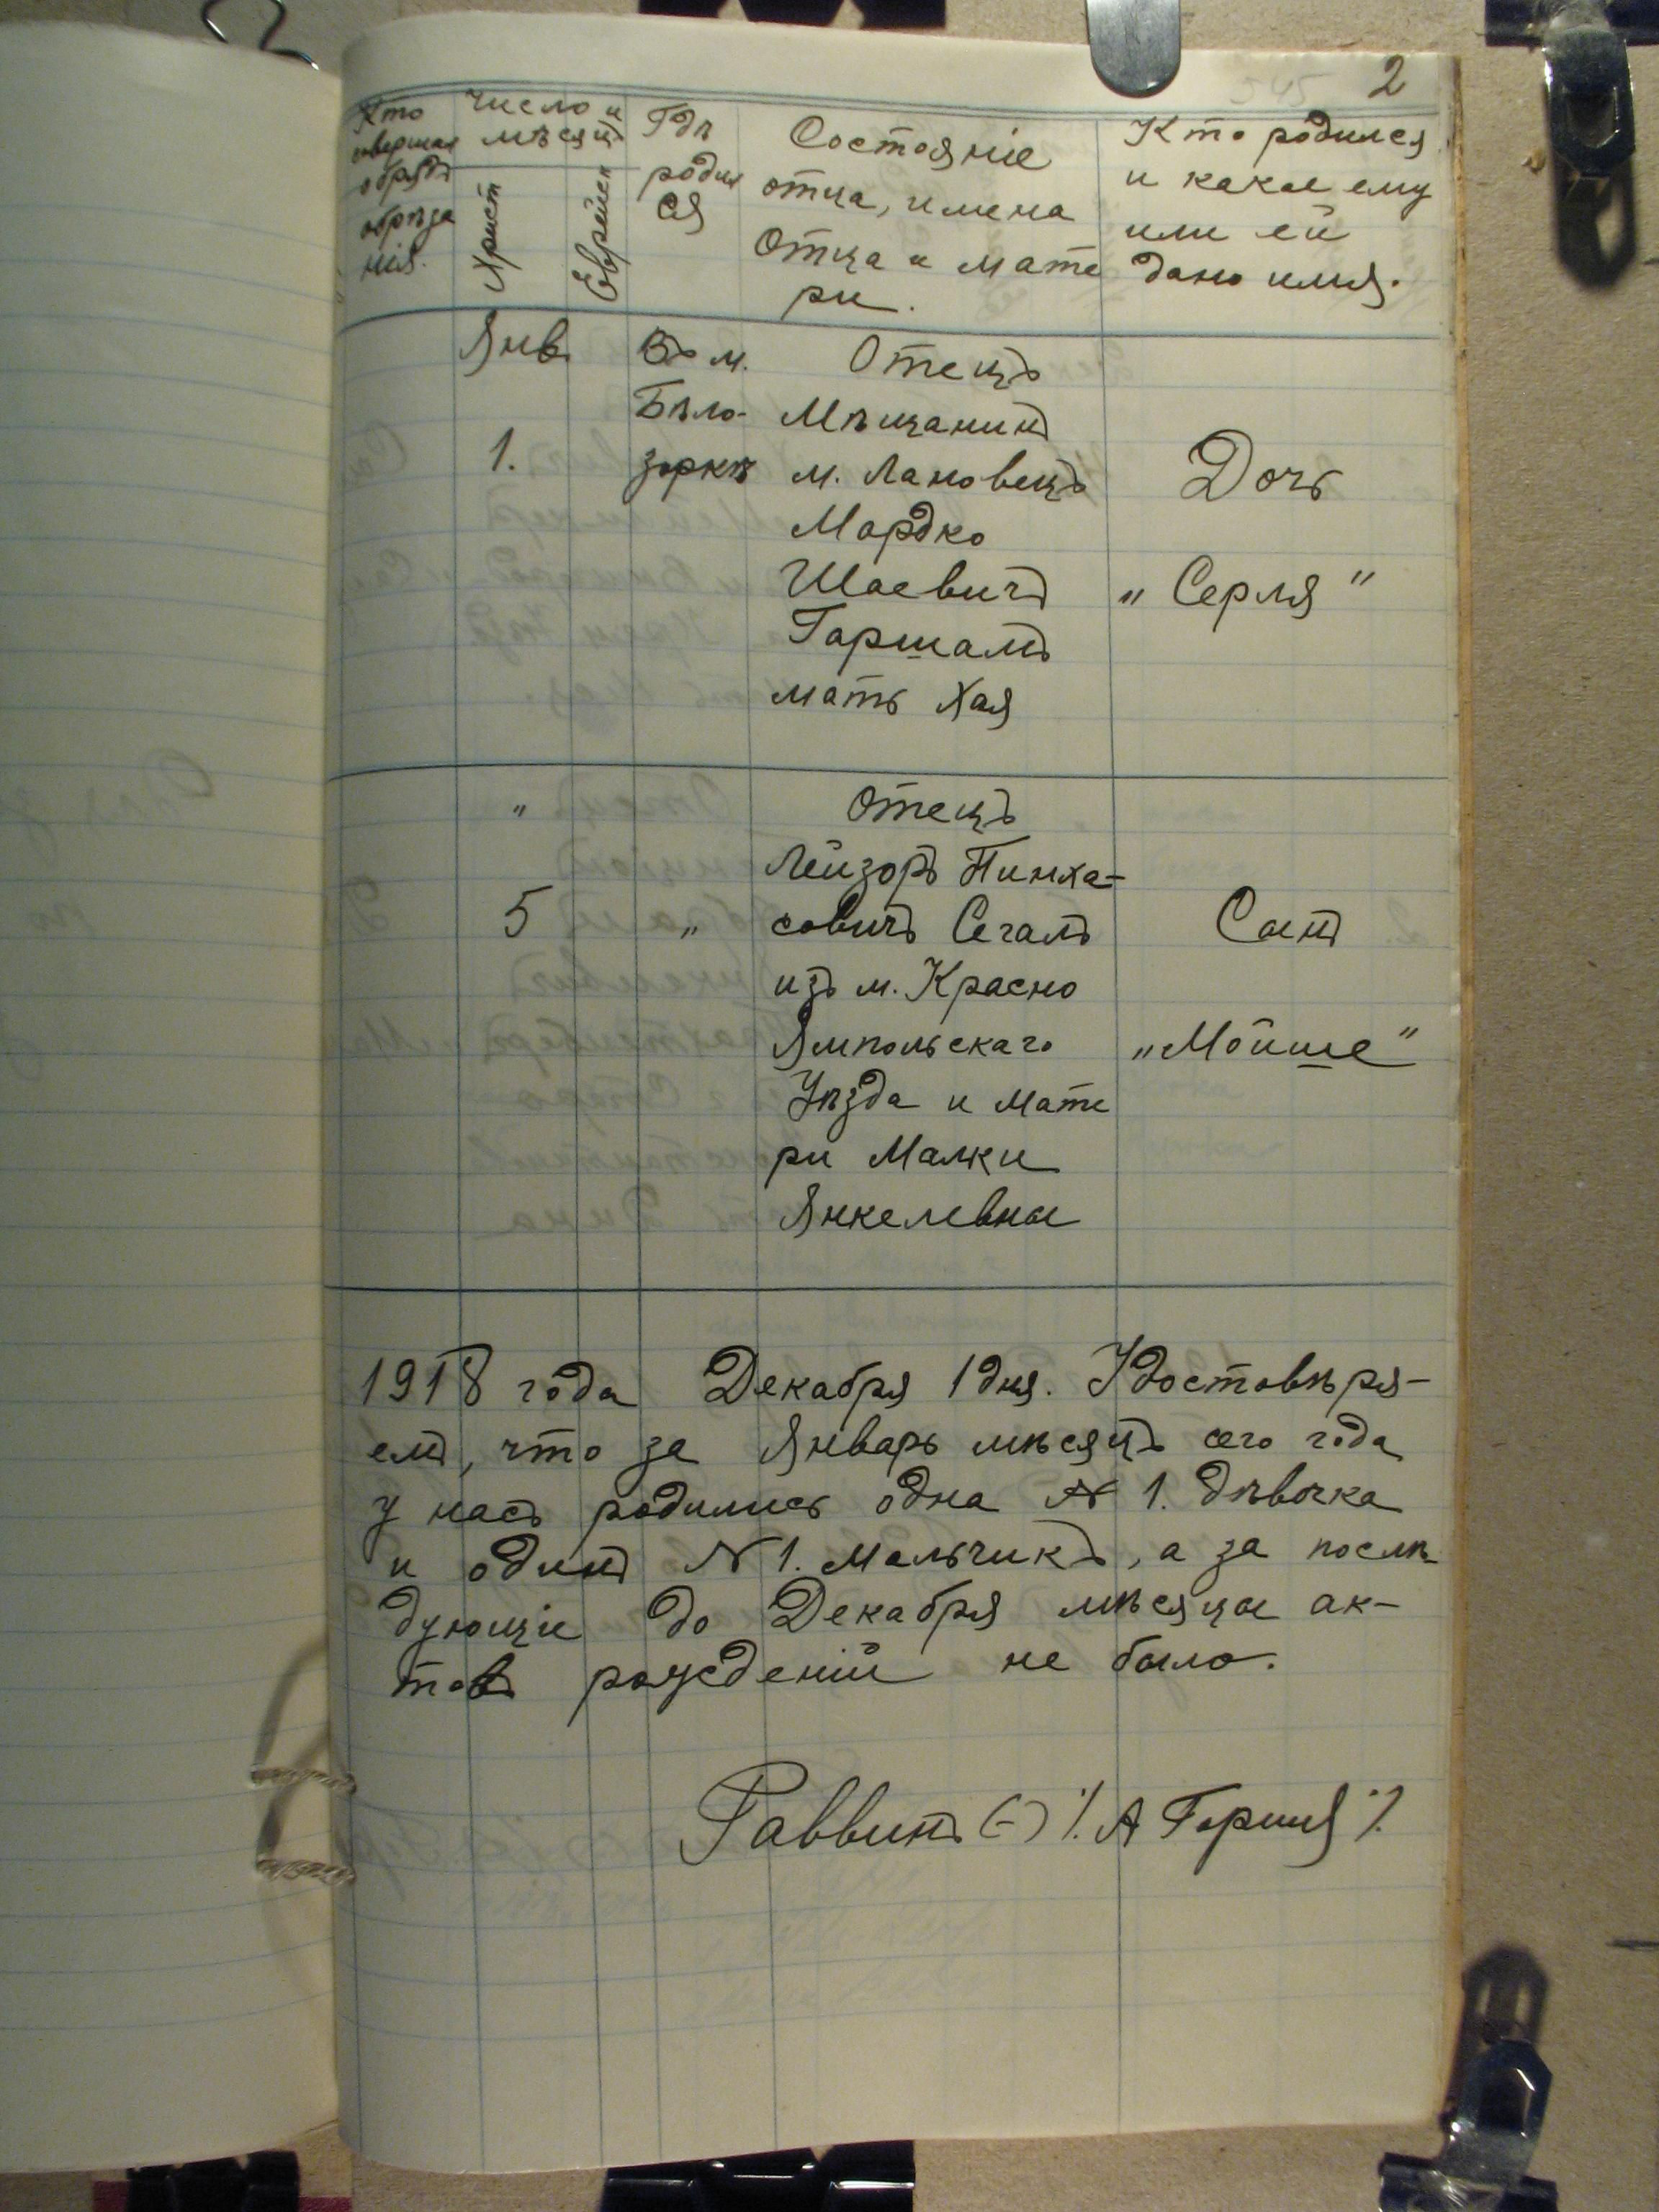 2
Кто
совершал
обрядъ
обрѣза
нія.
Число и
мѣсяцъ
Христ
Еврейск
Гдѣ
родил
ся
Состояніе
отца, имена
Отца и мате
ри.
Кто родился
и какое ему
или ей
дано имя.
Янв.
1.
Въ м.
Бѣло-
зоркѣ
Отецъ
Мѣщанинъ
м. Лановецъ
Мордко
Шаевичъ
Гаршалъ
мать Хая
Дочь
„ Серля "
"
5
"
Отецъ
Лейзоръ Пинха-
совичъ Сегалъ
изъ м. Красно
Ямпольскаго
Уѣзда и мате
ри Малки
Янкелевны
Сынъ
„Мойше"
1918 года Декабря 1 дня. Удостовѣря-
емъ, что за Январь мѣсяцъ сего года
у насъ родились одна № 1. дѣвочка
и одинъ № 1. мальчикъ, а за послѣ
дующіе до Декабря мѣсяцы ак-
товъ рожденій не было.
Раввинъ (-) /. А Горшя /.